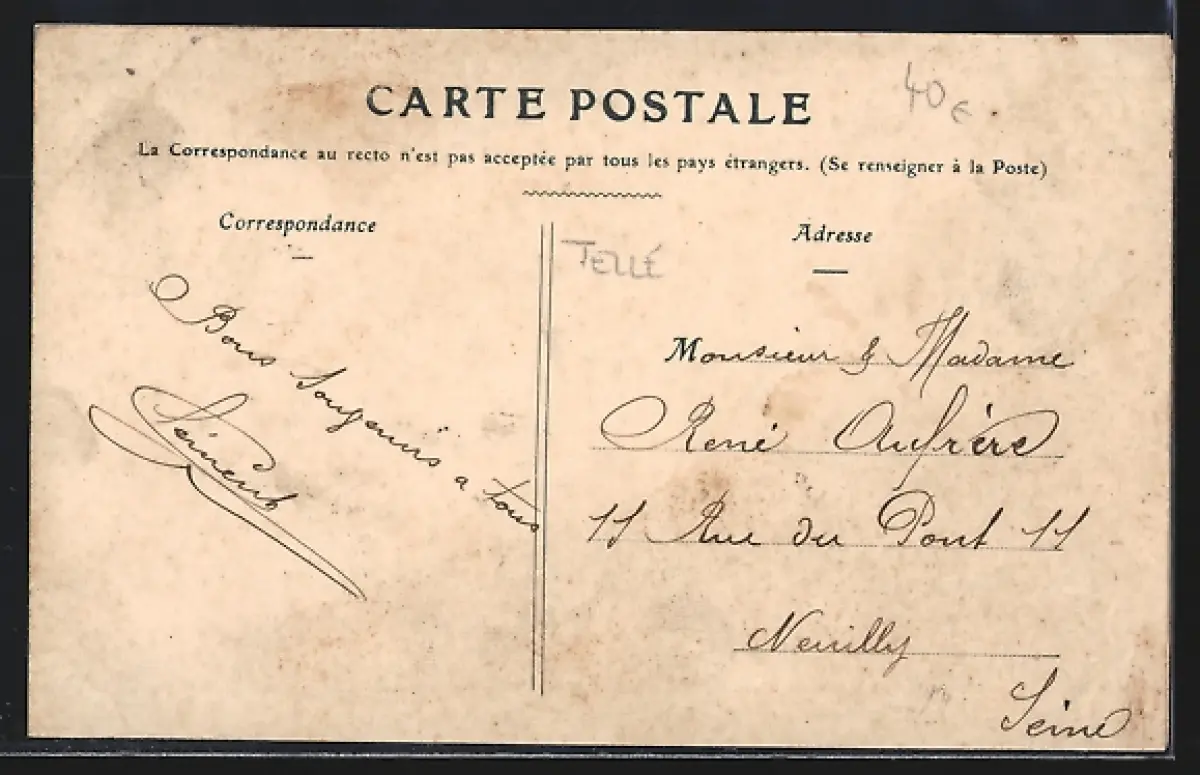 CARTE POSTALE
40 €
La Correspondance au recto n'est pas acceptée par tous les pays étrangers. (Se renseigner à la Poste)
Correspondance
Bons Souvenirs a tous
Adresse
TELLÉ
Monsieur & Madame
René Aufrère
11 Rue du Pont 11
Neuilly
Seine